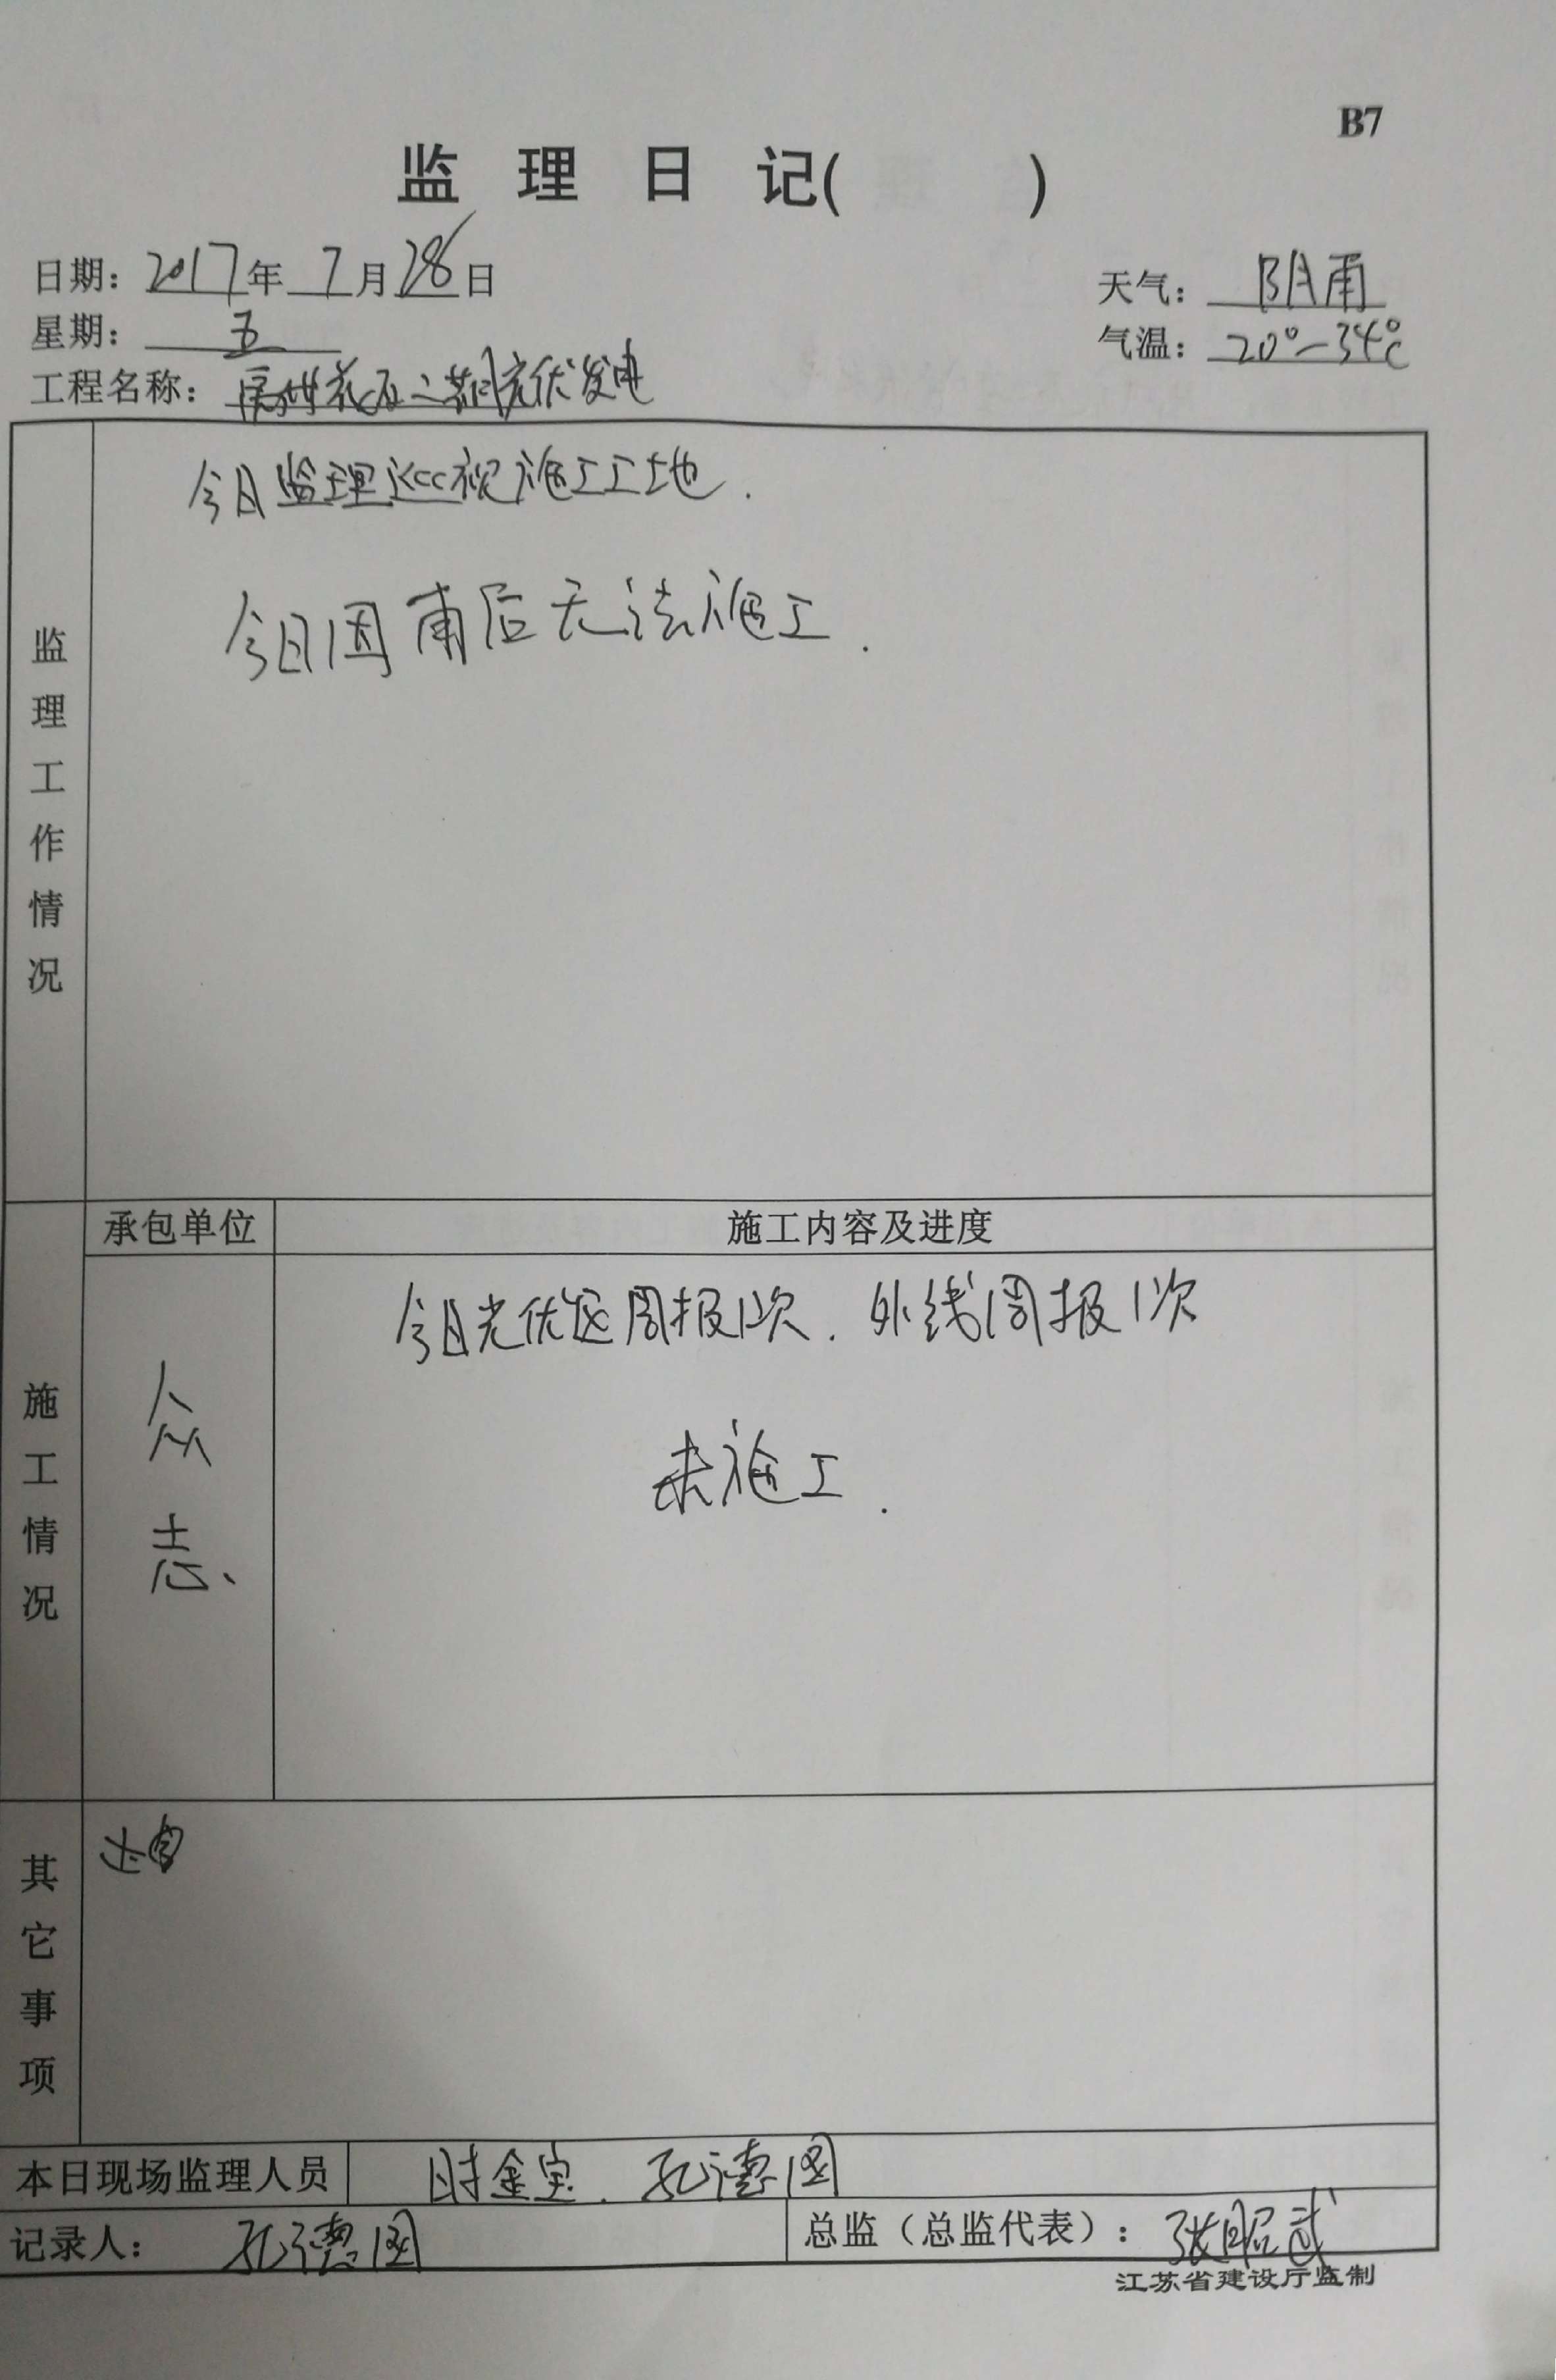 B7
监 理 日 记( )
日期：2017年 7月28日
天气：阴雨
星期：五
气温：20°-34℃
工程名称：禹州花石二期光伏发电
监理工作情况
今日监理巡视施工工地.
今日因雨后无法施工.
承包单位
施工内容及进度
施工情况
众志
今日光伏区周报1次.外线周报1次
未施工.
其它事项
本日现场监理人员
时金宝.孔德图
记录人：孔德图
总监（总监代表）：张昭武
江苏省建设厅监制